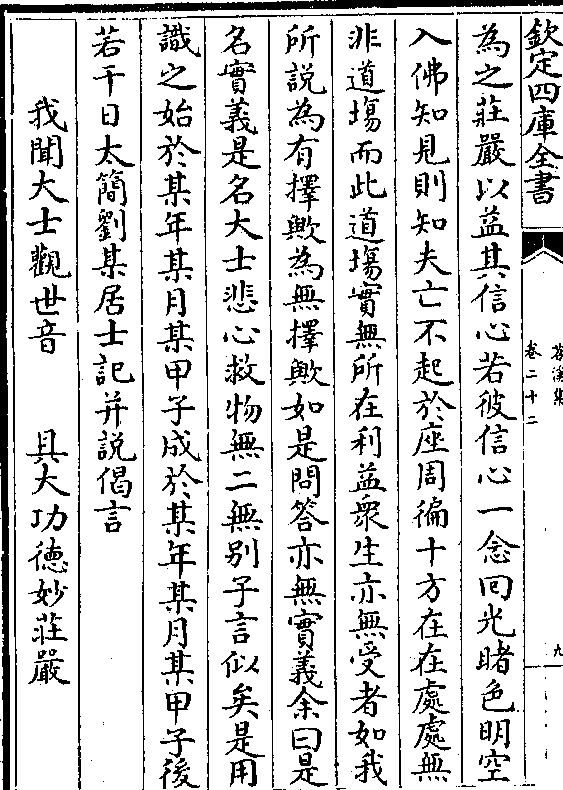 欽定四庫全書
苕溪集
卷二十二
九
為之莊嚴以益其信心若彼信心一念囘光睹色明空
入佛知見則知夫亡不起於座周徧十方在在處處無
非道塲而此道塲實無所在利益衆生亦無受者如我
所説為有擇歟為無擇歟如是問答亦無實義余曰是
名實義是名大士悲心救物無二無别子言似矣是用
識之始於某年某月某甲子成於某年某月某甲子後
若干日太簡劉某居士記并説偈言
我聞大士觀世音　具大功德妙莊嚴